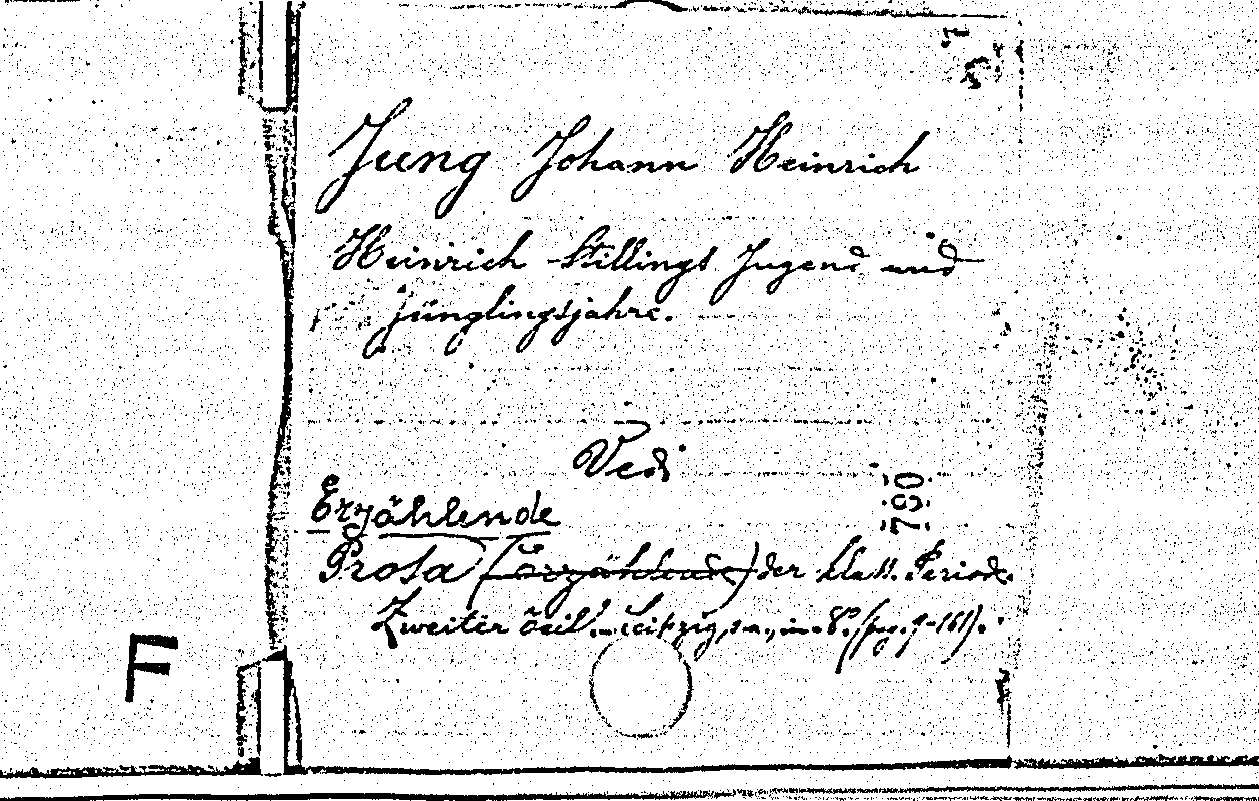 Jung Johann Heinrich
Heinrich Stillings Jugend und
Jünglingsjahre.
Vedi
790
Erzählende
Prosa (Erzählende) der klass. Periode.
Zweiter Teil. Leipzig, s. a., in 8.° (pag. 9-161).
F